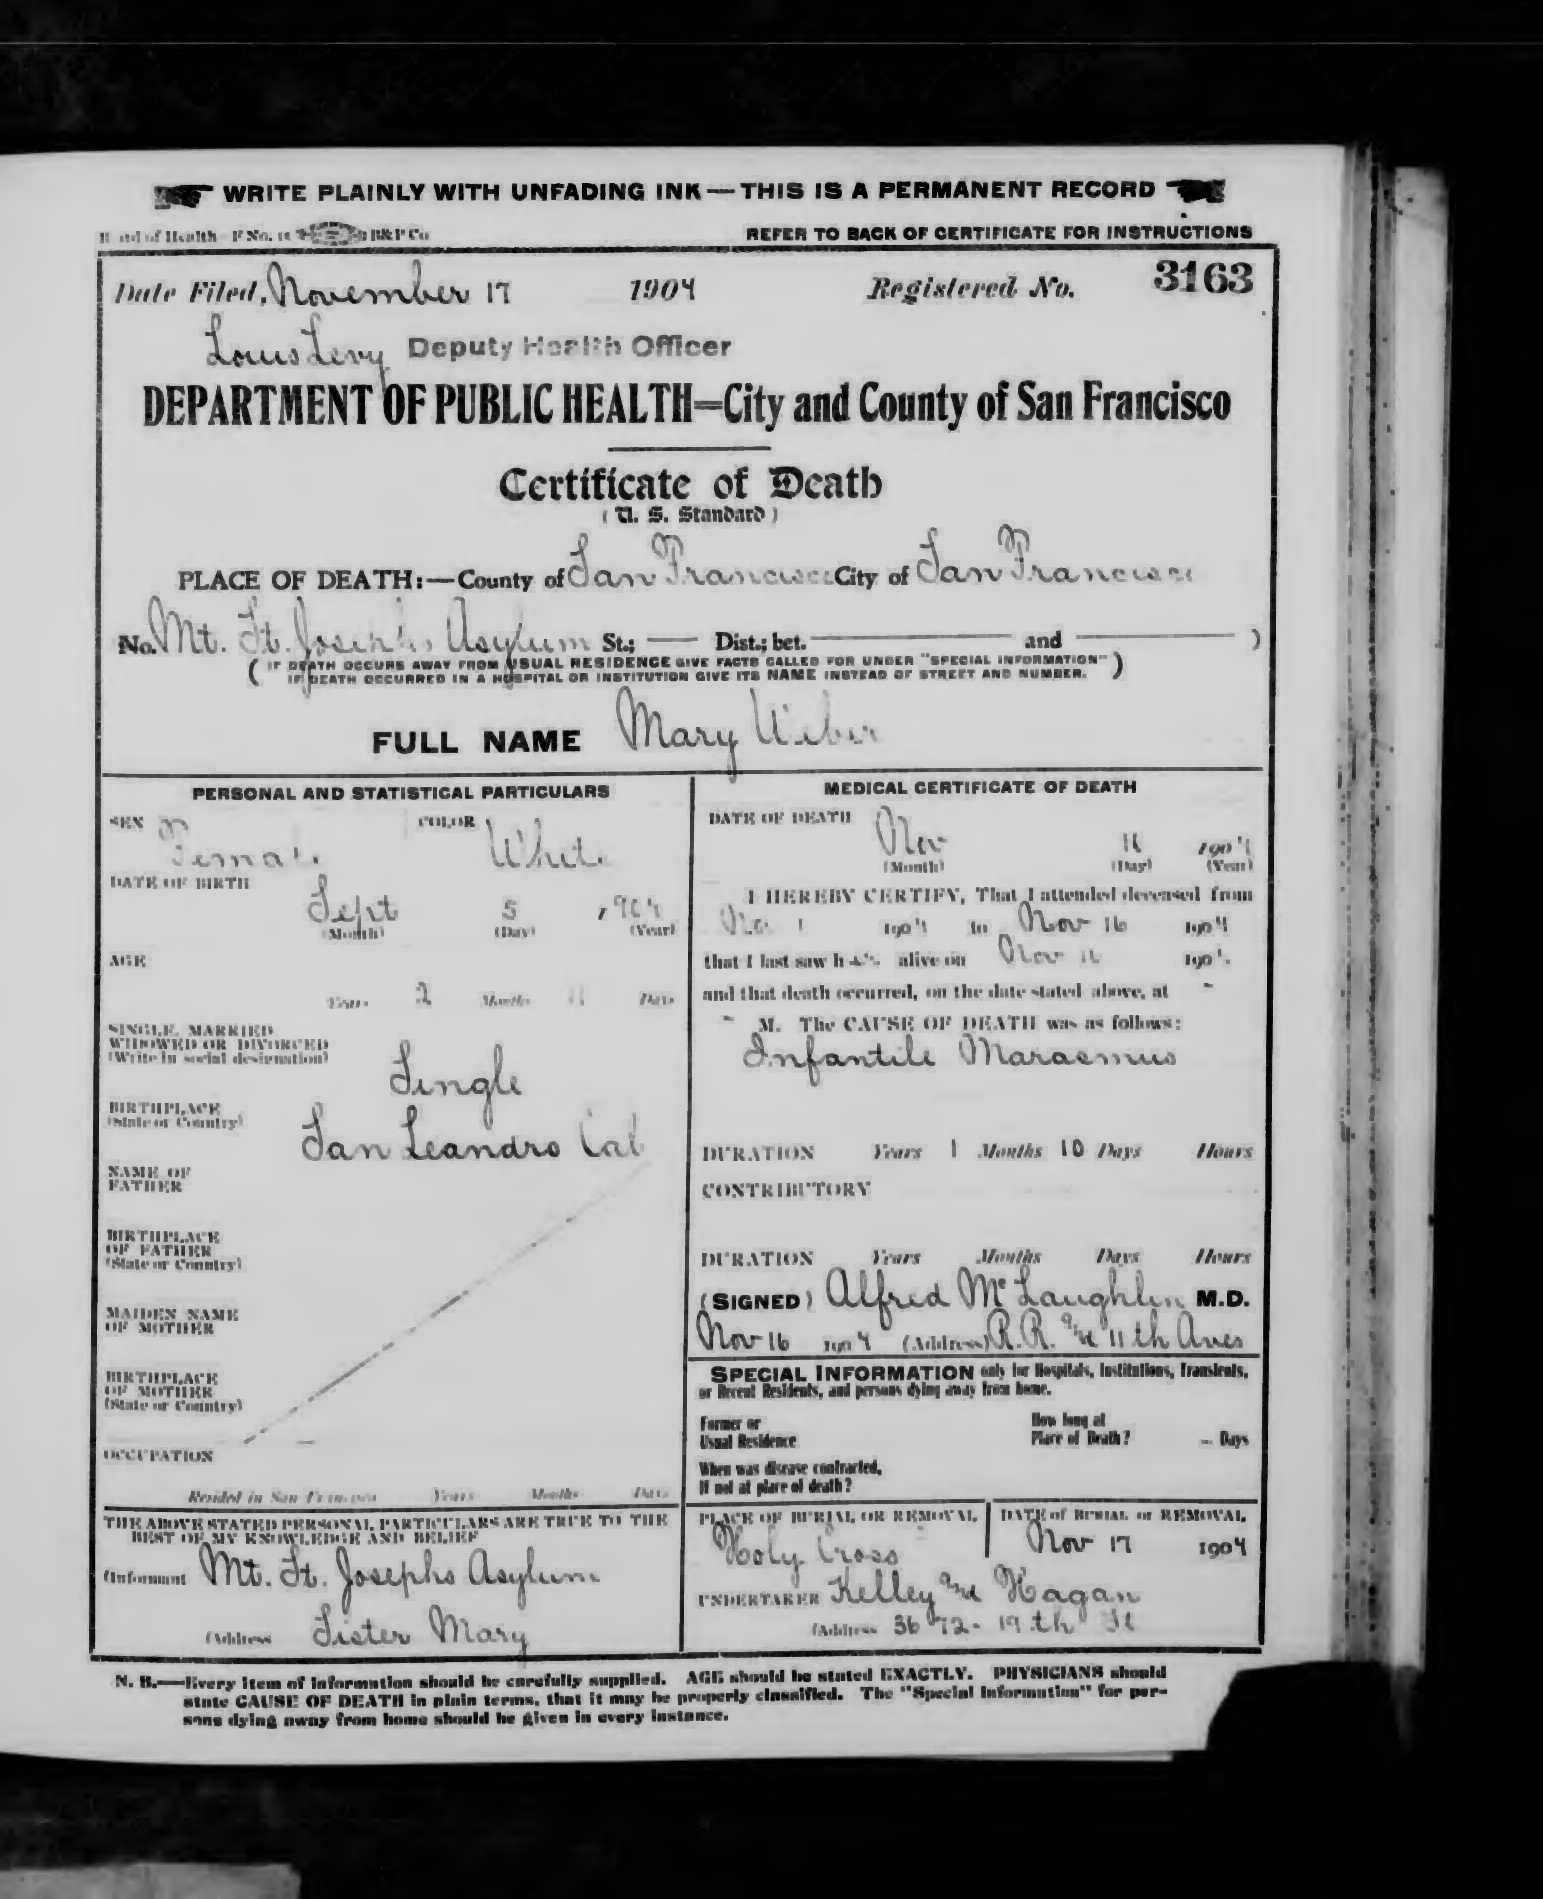 WRITE PLAINLY WITH UNFADING INK — THIS IS A PERMANENT RECORD
Board of Health - F No. B&P Co
REFER TO BACK OF CERTIFICATE FOR INSTRUCTIONS
Date Filed, November 17 1904 Registered No. 3163
Louis Levy Deputy Health Officer
DEPARTMENT OF PUBLIC HEALTH=City and County of San Francisco
Certificate of Death
(U. S. Standard)
PLACE OF DEATH:—County of San Francisco City of San Francisco
No. Mt. St. Josephs Asylum St.; — Dist.; bet. — and — )
( IF DEATH OCCURS AWAY FROM USUAL RESIDENCE GIVE FACTS CALLED FOR UNDER "SPECIAL INFORMATION"
IF DEATH OCCURRED IN A HOSPITAL OR INSTITUTION GIVE ITS NAME INSTEAD OF STREET AND NUMBER. )
FULL NAME Mary Weber
PERSONAL AND STATISTICAL PARTICULARS
SEX Female COLOR White
DATE OF BIRTH
Sept 5 1904
(Month) (Day) (Year)
AGE
Years 2 Months 11 Days
SINGLE, MARRIED
WIDOWED OR DIVORCED
(Write in social designation)
Single
BIRTHPLACE
(State or Country)
San Leandro Cal
NAME OF
FATHER
BIRTHPLACE
OF FATHER
(State or Country)
MAIDEN NAME
OF MOTHER
BIRTHPLACE
OF MOTHER
(State or Country)
OCCUPATION —
Resided in San Francisco Years Months Days
THE ABOVE STATED PERSONAL PARTICULARS ARE TRUE TO THE
BEST OF MY KNOWLEDGE AND BELIEF
(Informant Mt. St. Josephs Asylum
(Address Sister Mary
MEDICAL CERTIFICATE OF DEATH
DATE OF DEATH
Nov 16 1904
(Month) (Day) (Year)
I HEREBY CERTIFY, That I attended deceased from
Nov 1 1904 to Nov 16 1904
that I last saw her alive on Nov 16 1904
and that death occurred, on the date stated above, at -
- M. The CAUSE OF DEATH was as follows:
Infantile Marasmus
DURATION Years 1 Months 10 Days Hours
CONTRIBUTORY
DURATION Years Months Days Hours
(SIGNED) Alfred McLaughlin M.D.
Nov 16 1904 (Address) R.R. and 11th Aves
SPECIAL INFORMATION only for Hospitals, Institutions, Transients,
or Recent Residents, and persons dying away from home.
Former or
Usual Residence
How long at
Place of Death? — Days
When was disease contracted,
If not at place of death?
PLACE OF BURIAL OR REMOVAL
Holy Cross
DATE of BURIAL or REMOVAL
Nov 17 1904
UNDERTAKER Kelley and Hagan
(Address 3672 - 19th St
N. B.—Every item of information should be carefully supplied. AGE should be stated EXACTLY. PHYSICIANS should
state CAUSE OF DEATH in plain terms, that it may be properly classified. The "Special Information" for per-
sons dying away from home should be given in every instance.